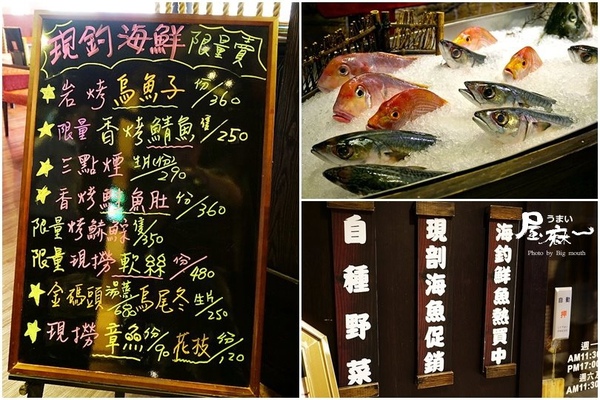 現釣海鮮 限量賣
岩烤烏魚子 份/360
限量香烤鯖魚 隻/250
三點煙 生片份/290
香烤鮮魚肚 份/360
限量烤鯨鱶 隻/350
限量現撈軟絲 份/480
金碼頭湯蒸/680 烏尾冬 生片/250
現撈章魚份/90 花枝 份/120
自種野菜
現剖海魚促銷
海釣鮮魚熱賣中
うまい
屋.麻
Photo by Big mouth
自動
押
週一
AM11:30
PM17:00
週六
AM11:30